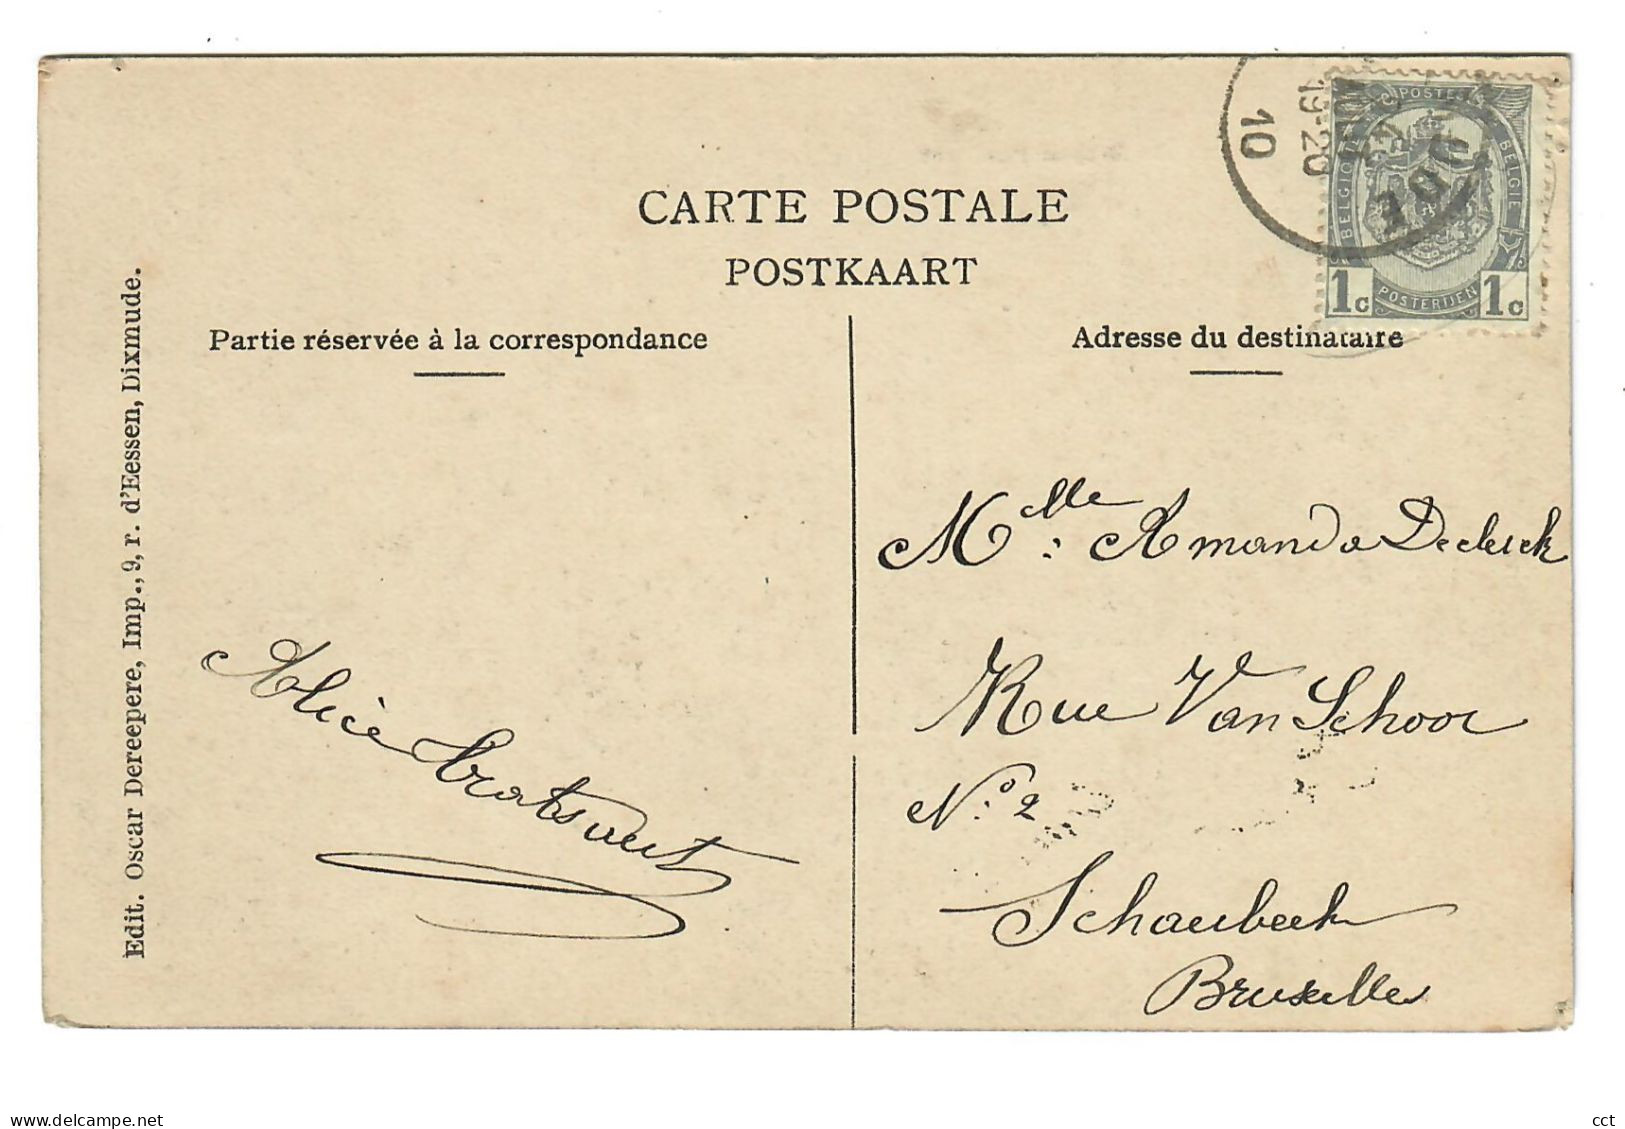 CARTE POSTALE
POSTKAART
Partie réservée à la correspondance
Adresse du destinataire
Edit. Oscar Dereepere, Imp., 9, r. d'Eessen, Dixmude.
POSTES
BELGIQUE
BELGIE
1c POSTERIJEN 1c
19-20
10
Mlle: Amanda Declerck
Rue Van Schoor
No. 2
Schaerbeek
Bruxelles
Alice
www.delcampe.net
cct